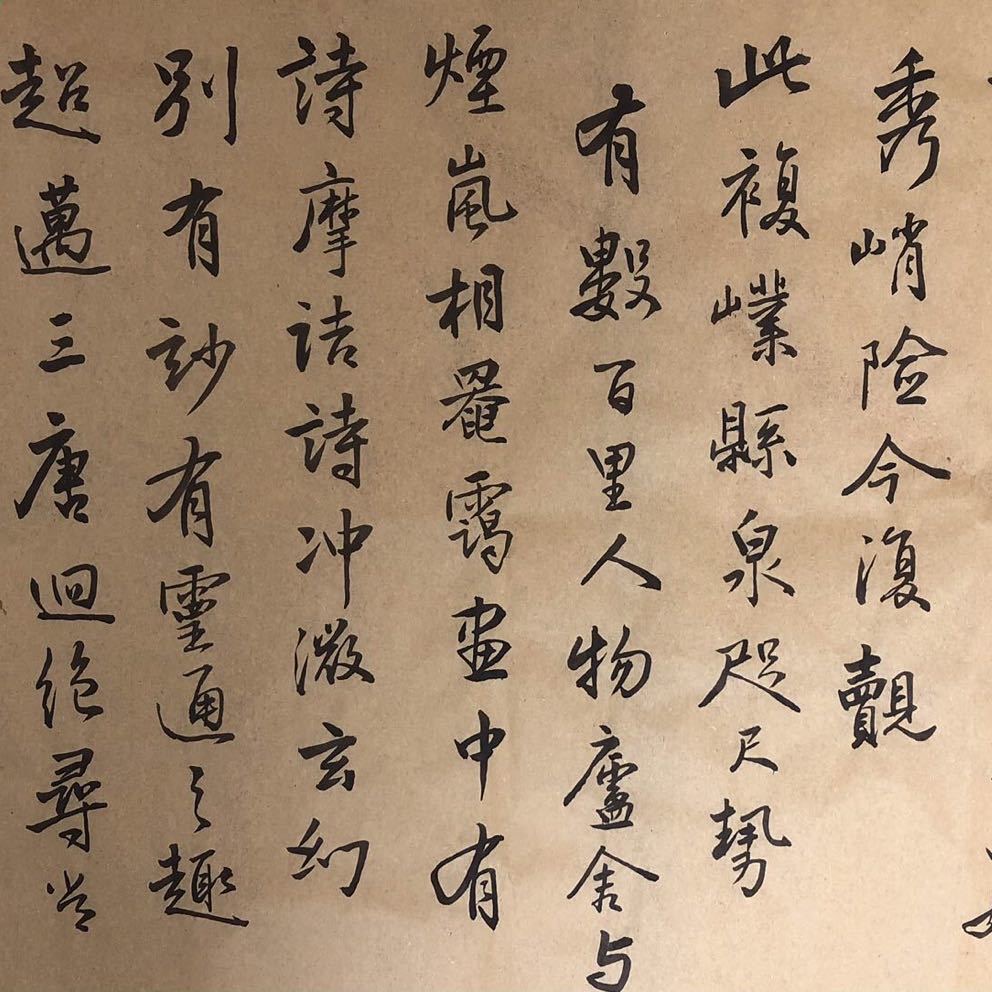 秀峭险今復覿
此複嶪縣泉咫尺勢
有數百里人物廬舍与
煙嵐相罨靄畫中有
詩摩詰詩冲澂玄幻
別有玅有靈通之趣
超邁三唐迴絶尋常